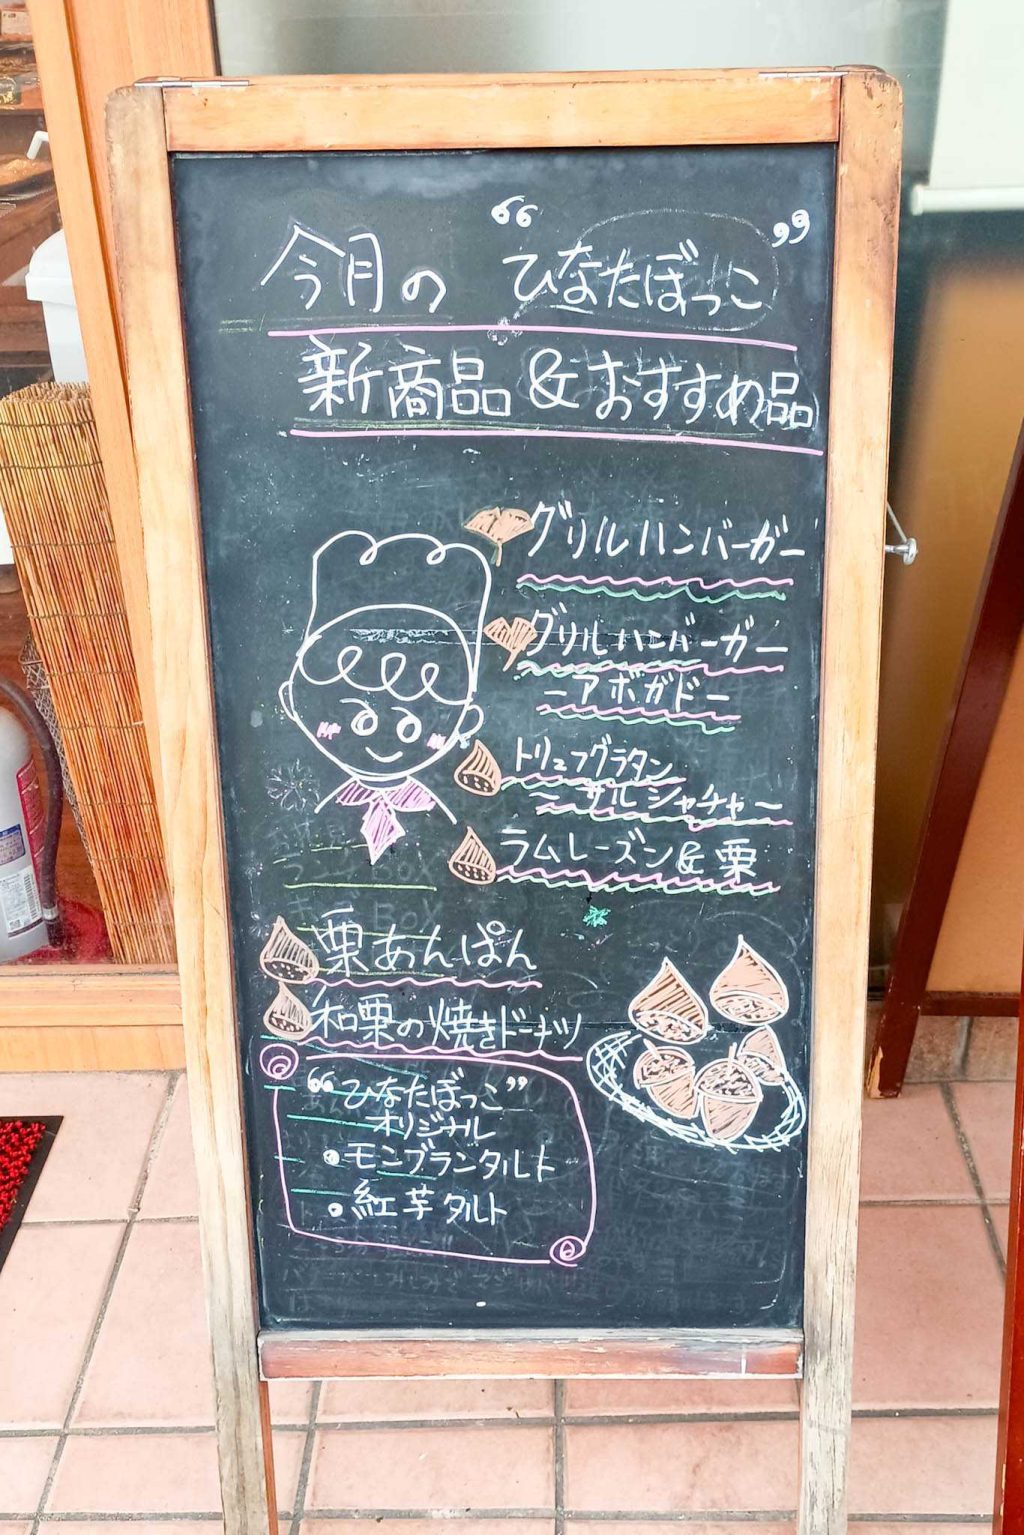 今月の “ひなたぼっこ”
新商品&おすすめ品
グリルハンバーガー
グリルハンバーガー
ーアボガドー
トリュフグラタン
ーサルシャチャー
ラムレーズン&栗
栗あんぱん
和栗の焼きドーナツ
“ひなたぼっこ”
オリジナル
・モンブランタルト
・紅芋タルト
BOX
BOX